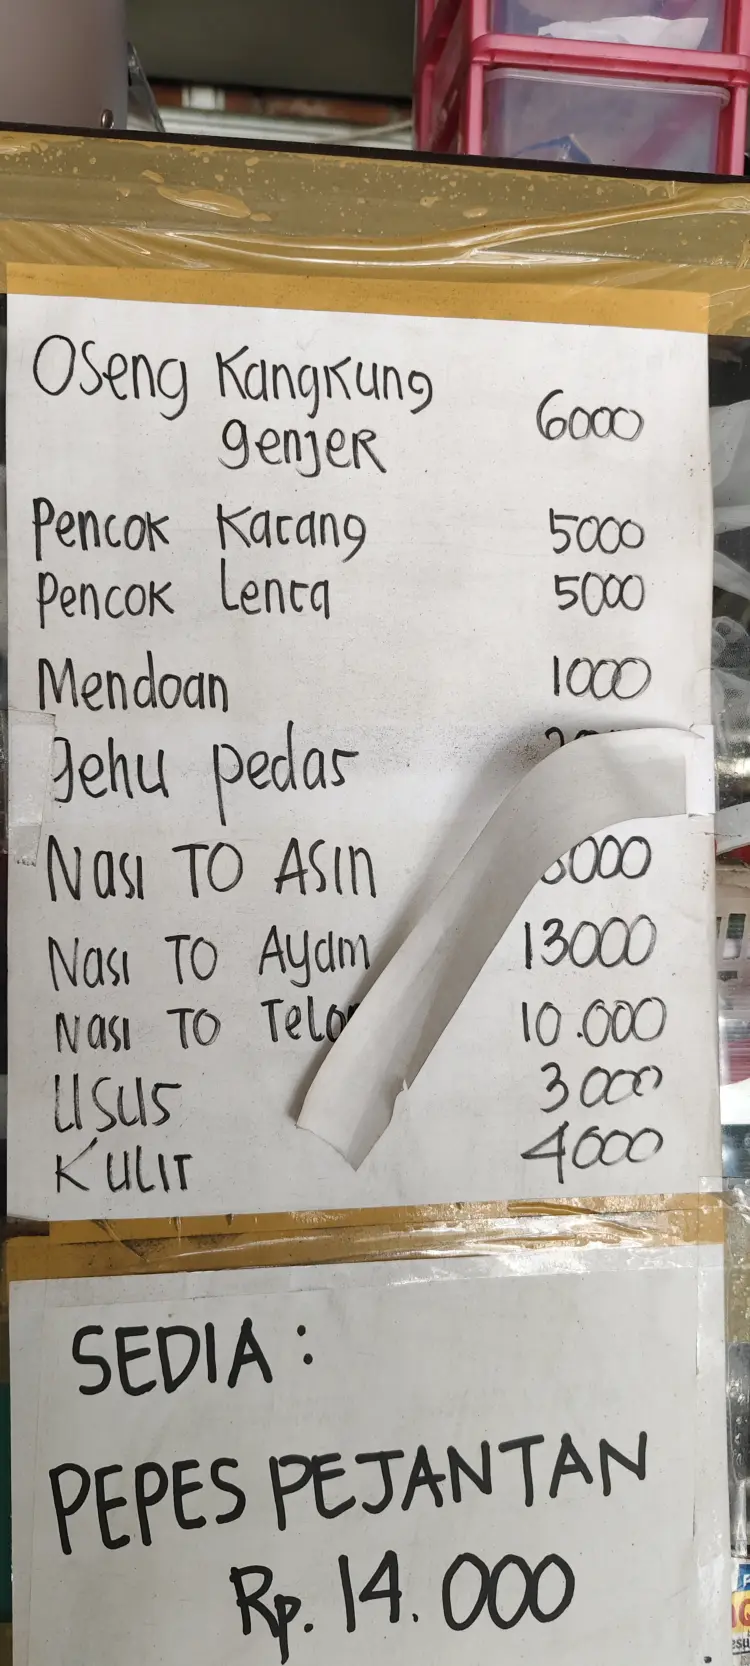 Oseng Kangkung
genjer 6000
Pencok Kacang 5000
Pencok Lenca 5000
Mendoan 1000
Gehu pedas
Nasi TO ASIN
Nasi TO Ayam 13000
Nasi TO 10.000
Usus 3000
KULIT 4000
SEDIA :
PEPES PEJANTAN
Rp. 14.000